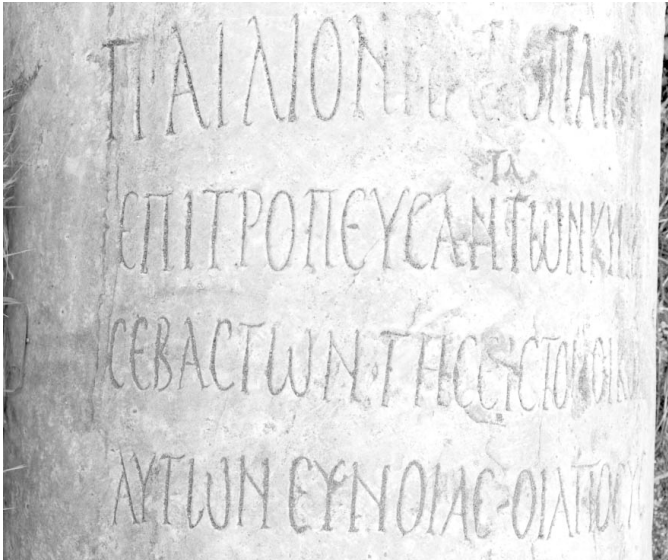 Π·ΑΙΛΙΟΝ
ΤΑ
ΕΠΙΤΡΟΠΕΥCΑΝΤΩΝΚΥ
CΕΒΑCΤΩΝ·ΤΗCΕΙCΤΟΝΟΙΚ
ΑΥΤΩΝ ΕΥΝΟΙΑC·ΟΙΑΠΟCΥ